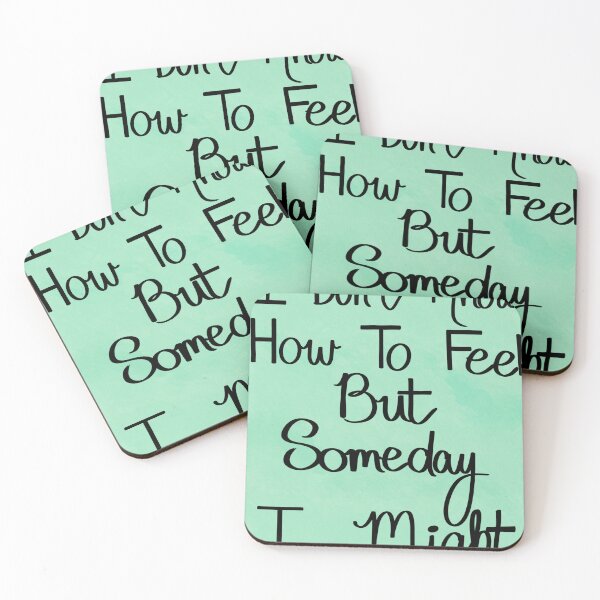 I Don't Know
How To Feel
But
I Don't Know
How To Feel
But
Someday
I Don't
How To Feel
But
Somed
I M
I Don't Know
How To Feel
But
Someday
I Might